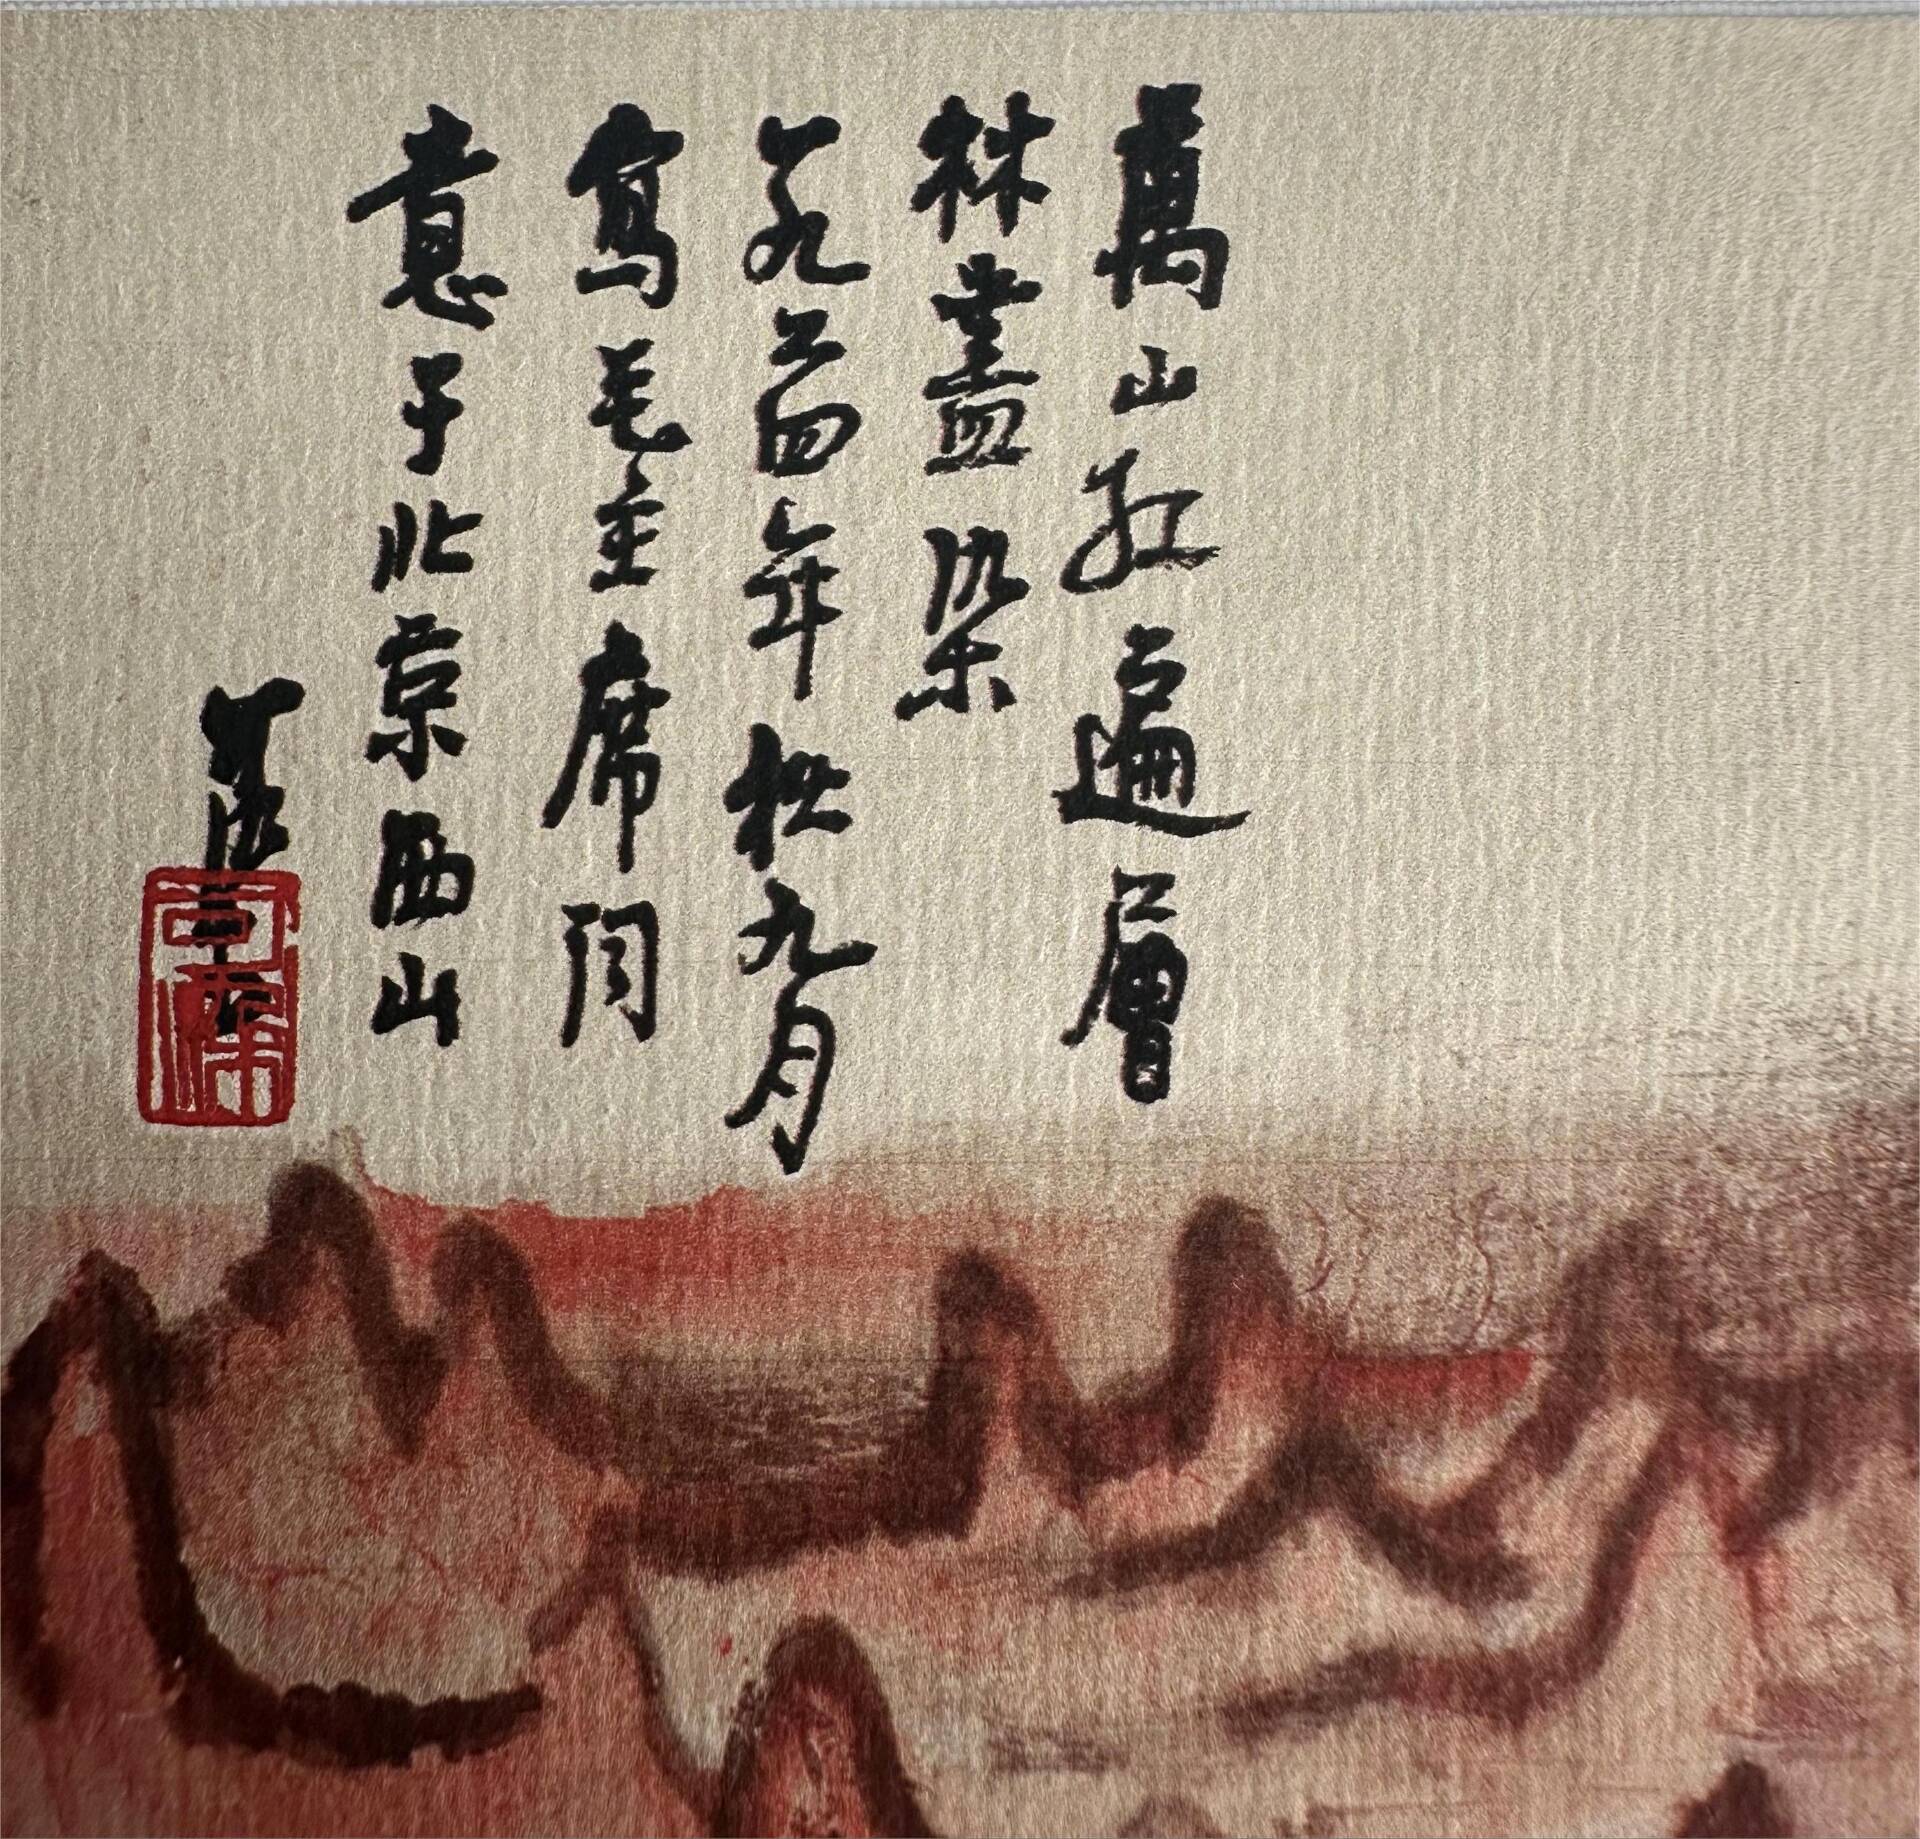 萬山紅遍層
林盡染
一九六四年秋九月
寫毛主席詞
意于北京西山